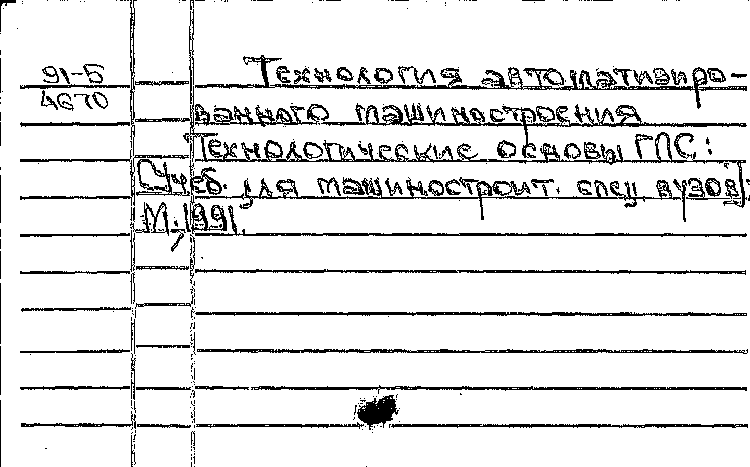 91-Б
4670
Технология автоматизиро-
ванного машиностроения
Технологические основы ГПС:
[Учеб. для машиностроит. спец. вузов].
М., 1991.